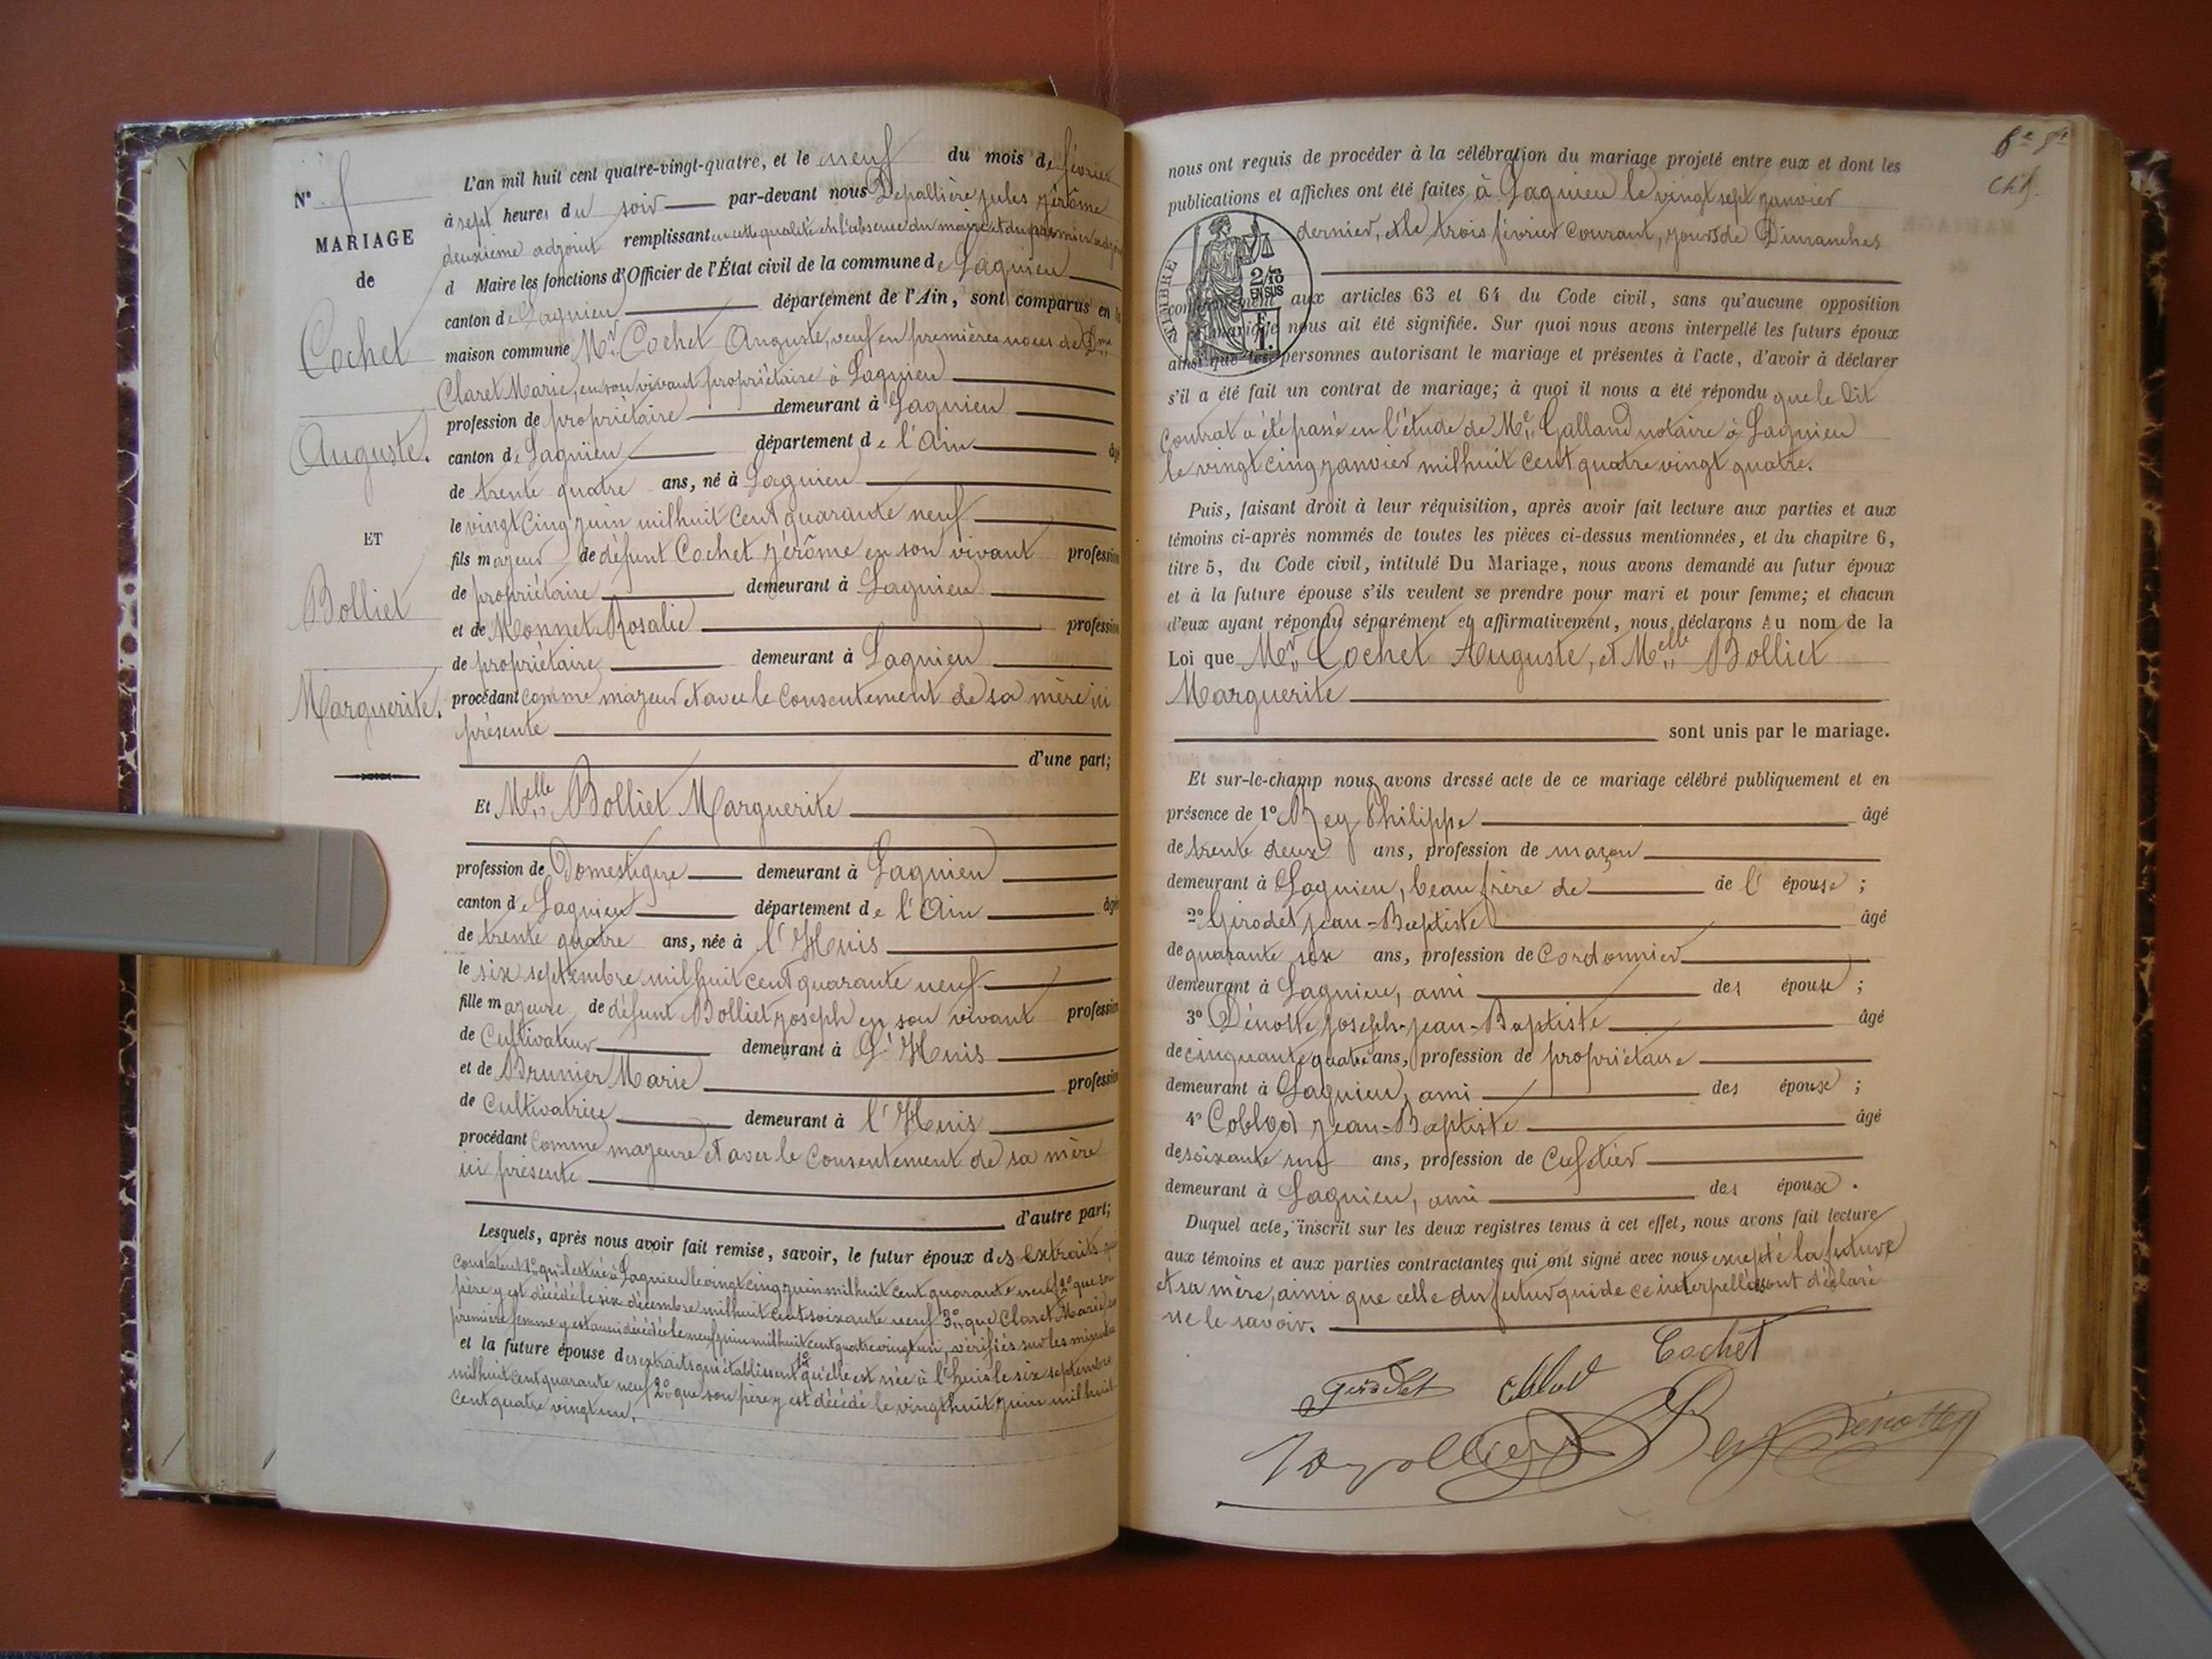 N°
MARIAGE
de
Cochet
Auguste.
ET
Bolliet
Marguerite.
L'an mil huit cent quatre-vingt-quatre, et le neuf du mois de février
à sept heures du soir par-devant nous Depallière jules jérôme
deuxième adjoint remplissant en cette qualité et en l'absence du maire et du premier adjoint
d Maire les fonctions d'Officier de l'État civil de la commune de Lagnieu
canton de Lagnieu département de l'Ain, sont comparus en la
maison commune Mr. Cochet Auguste, veuf en premières noces de Dme
Claret Marie, en son vivant propriétaire à Lagnieu
profession de propriétaire demeurant à Lagnieu
canton de Lagnieu département de l'Ain âgé
de trente quatre ans, né à Lagnieu
le vingt cinq juin mil huit cent quarante neuf
fils majeur de défunt Cochet jérôme en son vivant profession
de propriétaire demeurant à Lagnieu
et de Monnet Rosalie profession
de propriétaire demeurant à Lagnieu
procédant comme majeur et avec le consentement de sa mère ici
présente
d'une part;
Et Melle Bolliet Marguerite
profession de Domestique demeurant à Lagnieu
canton de Lagnieu département de l'Ain âgé
de trente quatre ans, née à l'Huis
le six septembre mil huit cent quarante neuf
fille majeure de défunt Bolliet joseph en son vivant profession
de Cultivateur demeurant à L'Huis
et de Brunier Marie profession
de Cultivatrice demeurant à l'Huis
procédant comme majeure et avec le consentement de sa mère
ici présente
d'autre part;
Lesquels, après nous avoir fait remise, savoir, le futur époux des extraits
constatant 1° qu'il est né à Lagnieu le vingt cinq juin mil huit cent quarante neuf 2° que son
père y est décédé le six décembre mil huit cent soixante neuf 3° que Claret Marie sa
première femme y est aussi décédée le neuf juin mil huit cent quatre vingt un, vérifiés sur les minutes
et la future épouse des extraits qui établissent 1° qu'elle est née à l'huis le six septembre
mil huit cent quarante neuf 2° que son père y est décédé le vingt huit juin mil huit
cent quatre vingt un.
nous ont requis de procéder à la célébration du mariage projeté entre eux et dont les
publications et affiches ont été faites à Lagnieu le vingt sept janvier
dernier, et le trois février courant, jours de Dimanches
TIMBRE
2/10
EN SUS
F.
1.
conformément aux articles 63 et 64 du Code civil, sans qu'aucune opposition
au mariage nous ait été signifiée. Sur quoi nous avons interpellé les futurs époux
ainsi que les personnes autorisant le mariage et présentes à l'acte, d'avoir à déclarer
s'il a été fait un contrat de mariage; à quoi il nous a été répondu que le dit
contrat a été passé en l'étude de Me. Galland notaire à Lagnieu
le vingt cinq janvier mil huit cent quatre vingt quatre.
Puis, faisant droit à leur réquisition, après avoir fait lecture aux parties et aux
témoins ci-après nommés de toutes les pièces ci-dessus mentionnées, et du chapitre 6,
titre 5, du Code civil, intitulé Du Mariage, nous avons demandé au futur époux
et à la future épouse s'ils veulent se prendre pour mari et pour femme; et chacun
d'eux ayant répondu séparément et affirmativement, nous déclarons Au nom de la
Loi que Mr. Cochet Auguste, et Melle Bolliet
Marguerite
sont unis par le mariage.
Et sur-le-champ nous avons dressé acte de ce mariage célébré publiquement et en
présence de 1° Bey Philippe âgé
de trente deux ans, profession de maçon
demeurant à Lagnieu, beau frère de de l' épouse ;
2° Girodet jean-Baptiste âgé
de quarante six ans, profession de Cordonnier
demeurant à Lagnieu, ami des époux ;
3° Dénotte joseph-jean-Baptiste âgé
de cinquante quatre ans, profession de propriétaire
demeurant à Lagnieu, ami des époux ;
4° Coblod jean-Baptiste âgé
de soixante ans, profession de Cafetier
demeurant à Lagnieu, ami des époux .
Duquel acte, inscrit sur les deux registres tenus à cet effet, nous avons fait lecture
aux témoins et aux parties contractantes qui ont signé avec nous excepté la future
et sa mère, ainsi que celle du futur qui de ce interpellées ont déclaré
ne le savoir.
Cochet
Girodet
Coblod
Bey